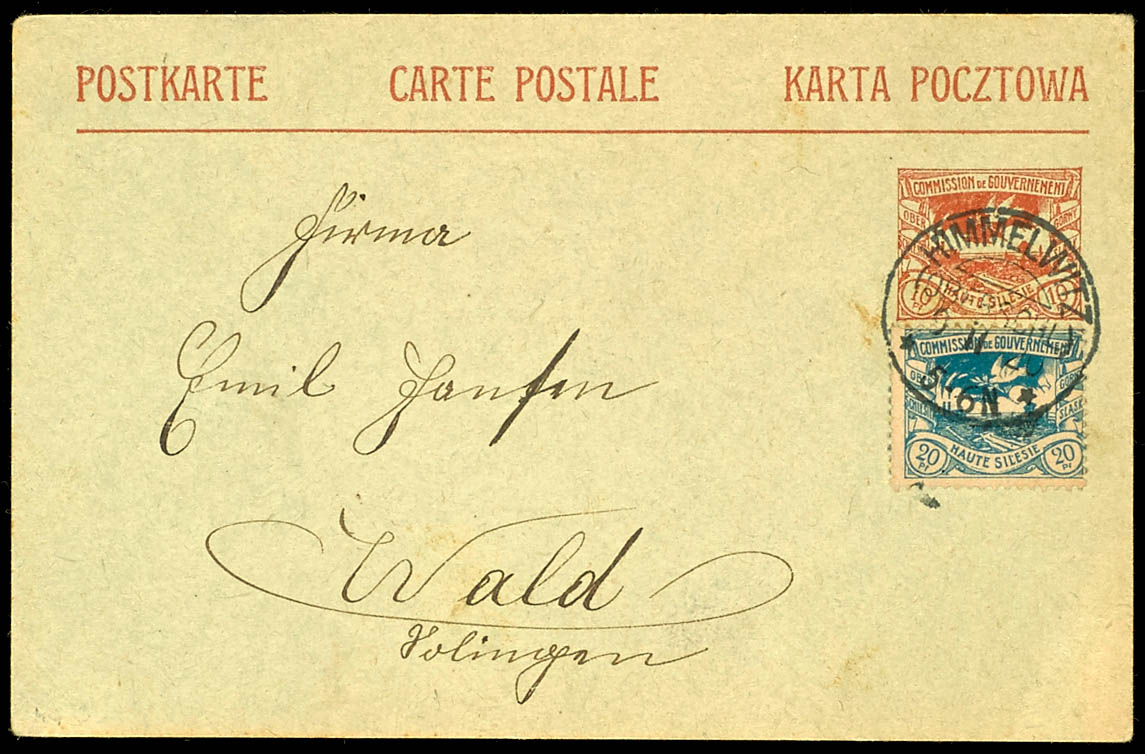 POSTKARTE CARTE POSTALE KARTA POCZTOWA
COMMISSION DE GOUVERNEMENT
OBER GORNY
HAUTE SILESIE
10 Pf 10 Pf
HIMMELWITZ
5-6N
COMMISSION DE GOUVERNEMENT
SLASK
20 Pf HAUTE SILESIE 20 Pf
Firma
Emil Jansen
Wald
Solingen